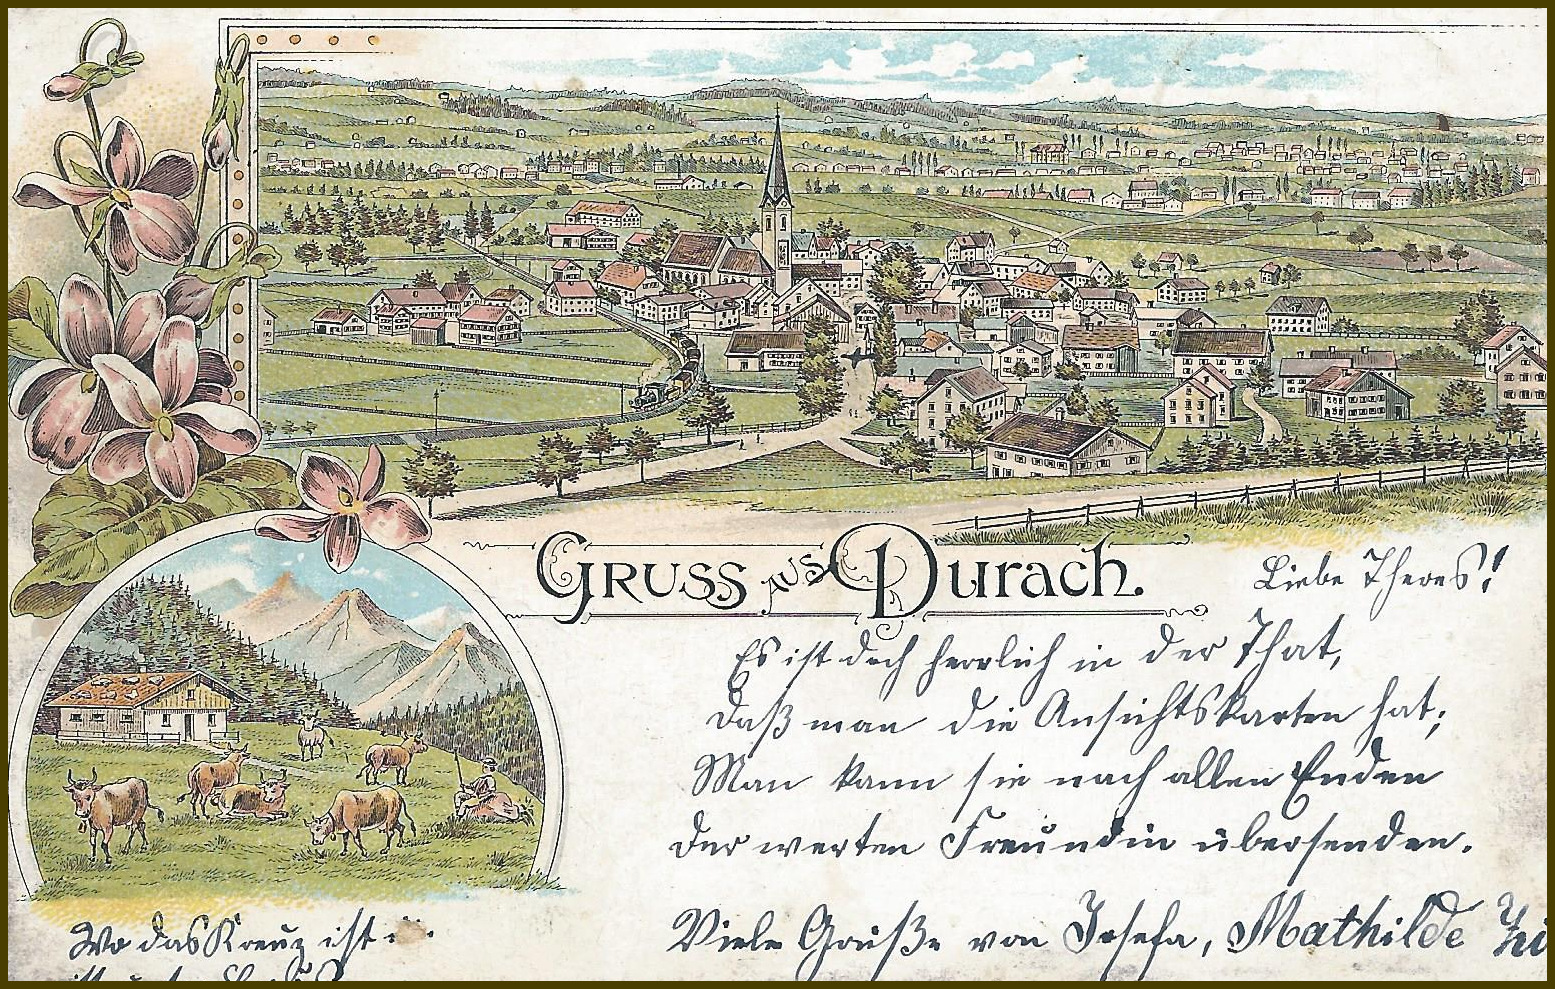 Gruss aus Durach.
Liebe Theres!
Es ist doch herrlich in der That,
daß man die Ansichtskarten hat;
Man kann sie nach allen Enden
der werten Freundin übersenden.
Viele Grüße von Josefa, Mathilde
Wo das Kreuz ist